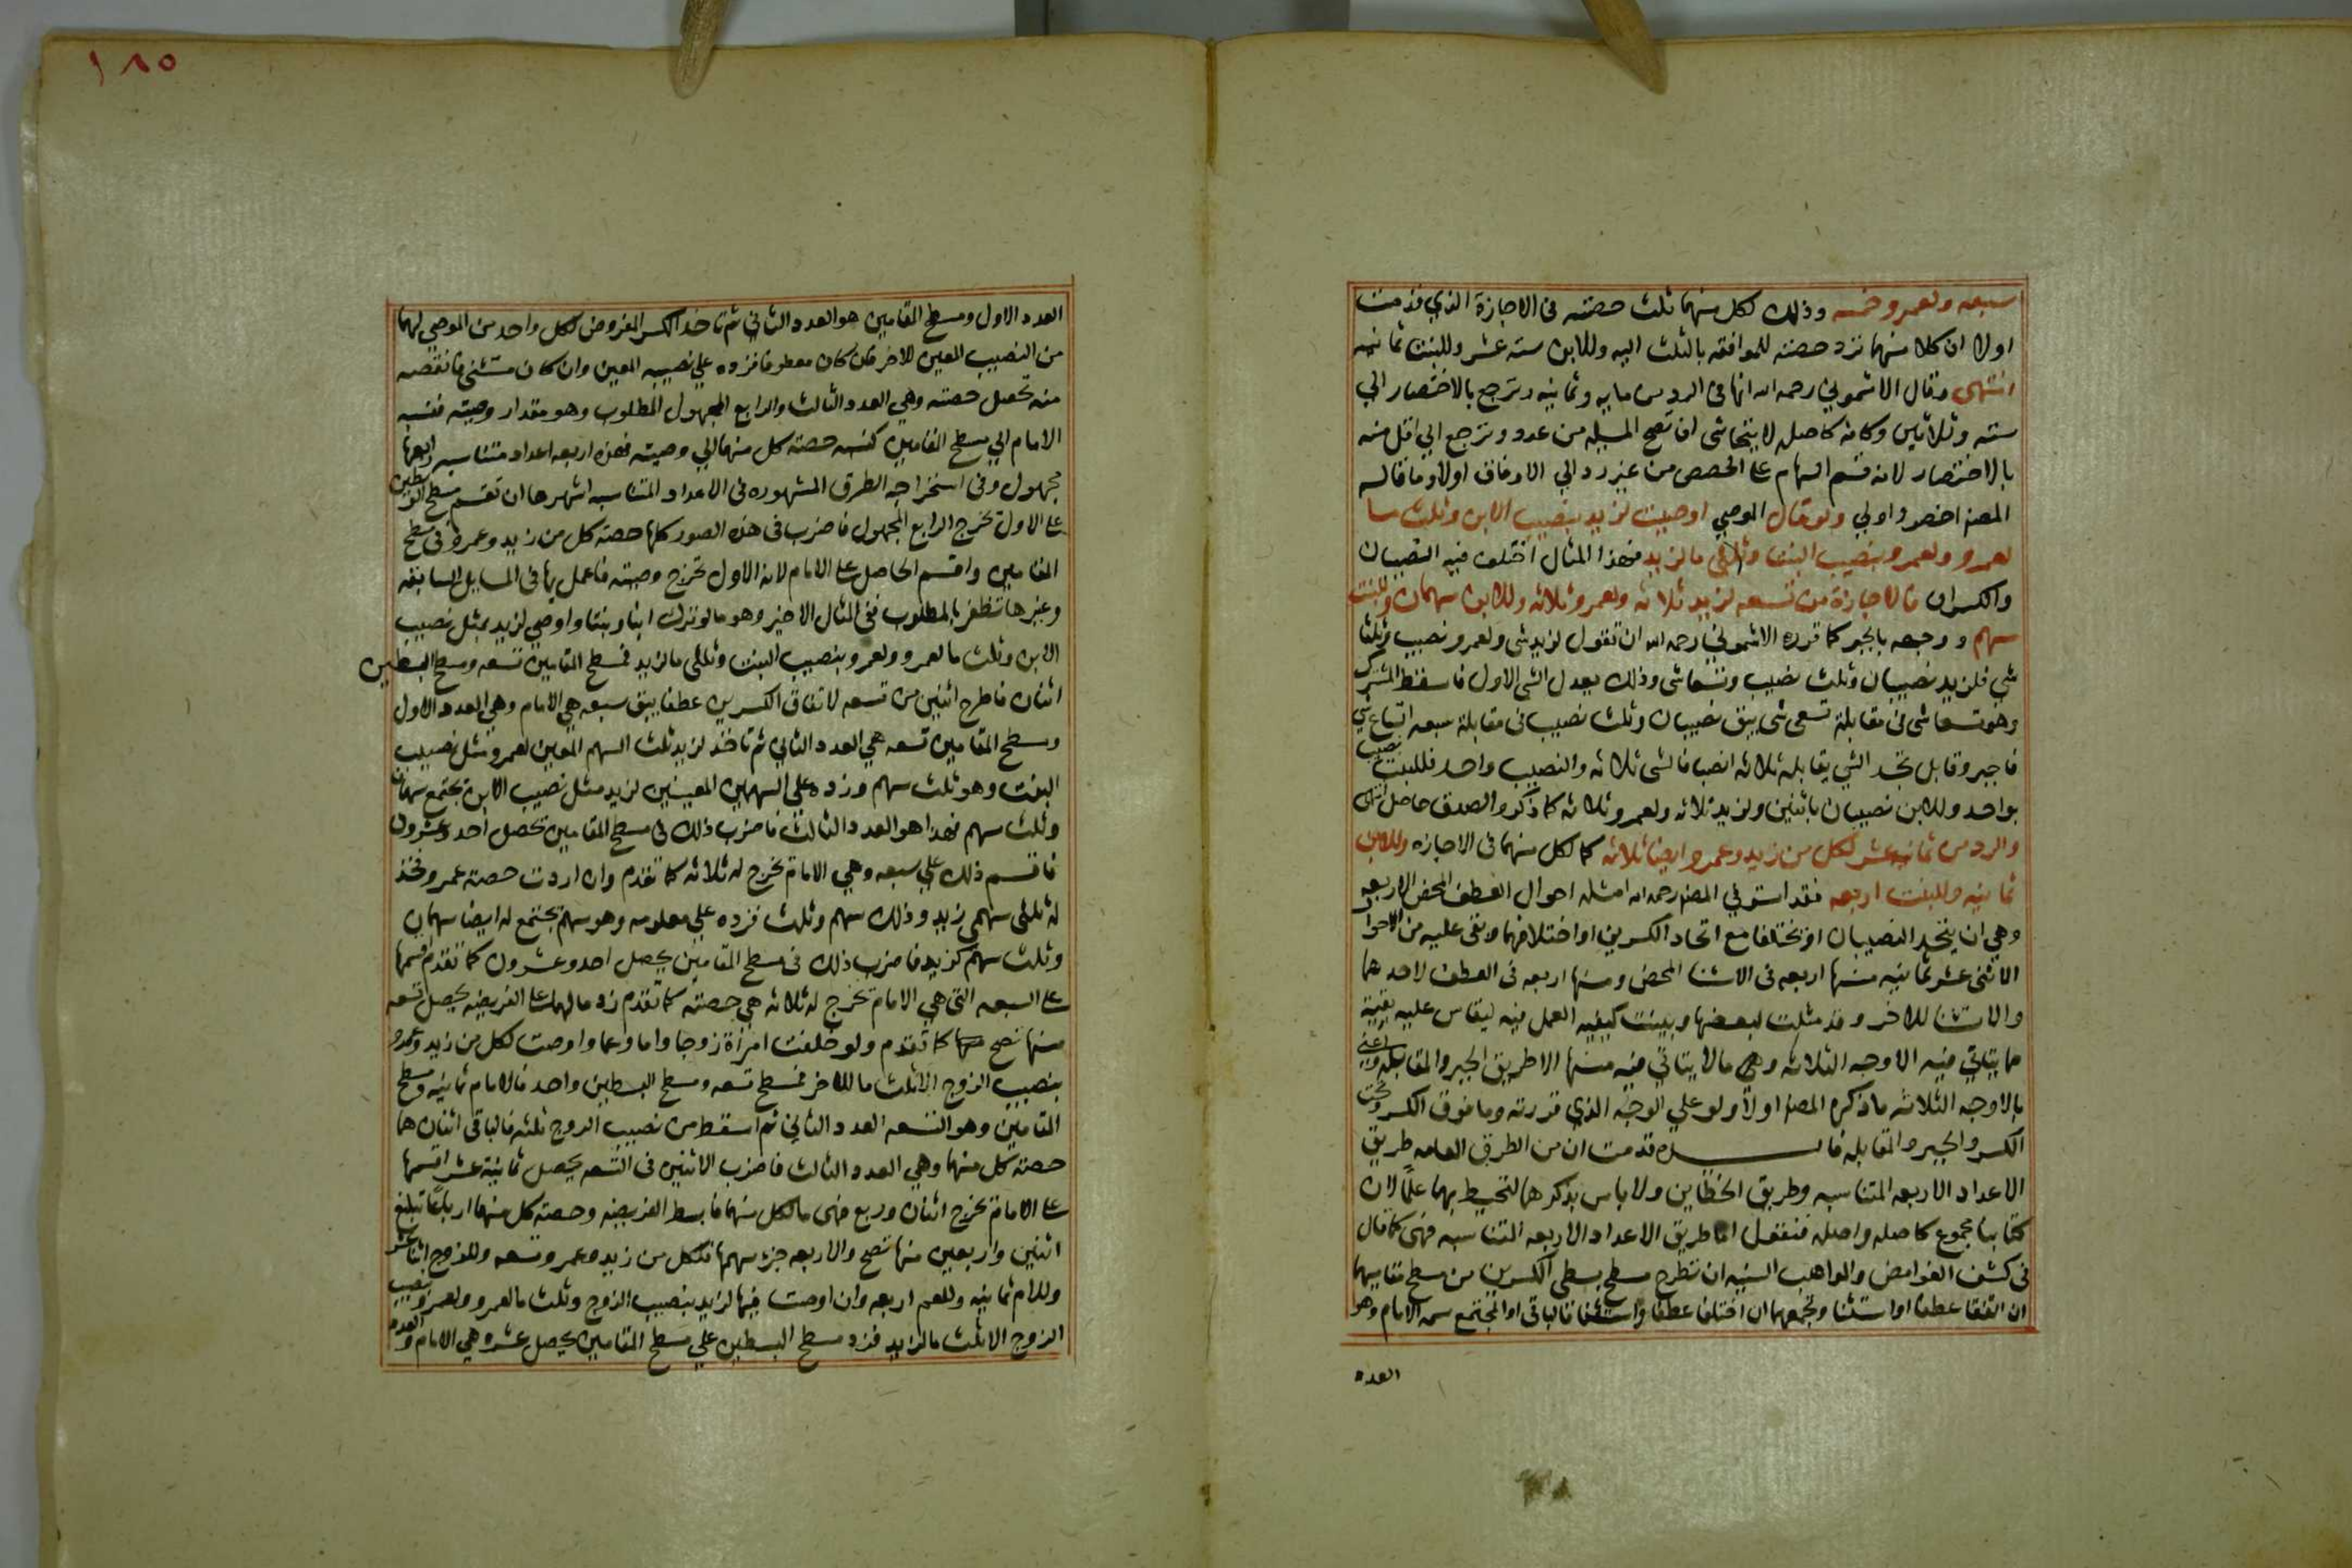 سبعه ولعمرو خمسه وذلك لكل منهما ثلث حصته فى الاجازة الذي قدمت
اولا ان كلا منهما ترد حصته للموافقه بالثلث اليه وللابن سته عشر وللبنت ثمانيه
انتهى وقال الاشموني رحمه الله انها فى الرد من مايه وثمانيه وترجع بالاختصار الي
سته وثلاثين وكانه كاصله لا يتحاشى ان تصح المسيله من عدد وترجع الي اقل منه
بالاختصار لانه قسم السهام على الحصص من غير رد الي الاوفاق اولا وما قاله
المصنف اخصر واولي ولو قال الموصي اوصيت لزيد بنصيب الابن وثلث ما
لعمرو ولعمرو بنصيب البنت وثلثى ما لزيد فهذا المثال اختلف فيه النصيبان
والكسران فالاجازة من تسعه لزيد ثلاثه ولعمرو ثلاثه وللابن سهمان وللبنت
سهم ووجهه بالجبر كما قرره الاشموني رحمه الله ان تقول لزيد شى ولعمرو نصيب وثلثا
شي فلزيد نصيبان وثلث نصيب وتسعا شى وذلك يعدل الشى الاول فاسقط المشترك
وهو تسعا شى فى مقابلة تسعى شى يبقى نصيبان وثلث نصيب فى مقابلة سبعه اتساع شي
فاجبر وقابل تجد الشي يقابله ثلاثه انصبا فالشى ثلاثه والنصيب واحد فللبنت نصيب
بواحد وللابن نصيبان باثنين ولزيد ثلاثه ولعمرو ثلاثه كما ذكروا الصدق حاصل انتهى
والرد من ثمانيه عشر لكل من زيد وعمرو ايضا ثلاثه كما لكل منهما فى الاجازه وللابن
ثمانيه وللبنت اربعه فقد استوفي المصنف رحمه الله امثله احوال العطف المحض الاربعه
وهي ان يتحد النصيبان او يختلفا مع اتحاد الكسرين او اختلافهما وبقى عليه من الاحوال
الاثنى عشر ثمانيه منها اربعه فى الاستثنا المحض ومنها اربعه فى العطف لاحدهما
والاستثنا للاخر وقد مثلت لبعضها وبينت كيفيه العمل فيه ليقاس عليه بقية
ما يتاتي فيه الاوجه الثلاثه وهى ما لا يتاتي فيه منها الا طريق الجبر والمقابله واعنى
بالاوجه الثلاثه ما ذكره المصنف اولا ولو علي الوجه الذي قررته وما فوق الكسر وتحت
الكسر والجبر والمقابله فايده قدمت ان من الطرق العامه طريق
الاعداد الاربعه المتناسبه وطريق الخطاين ولا باس بذكرهما لتحيط بهما علما لان
كتابنا مجموع كاصله واصله فنقول اما طريق الاعداد الاربعه المتناسبه فهى كما قال
فى كشف الغوامض والمواهب السنيه ان تطرح مسطح بسطى الكسرين من مسطح مقاميهما
ان اتفقا عطفا او استثنا وتجمعهما ان اختلفا عطفا واستثنا فالباقى او المجتمع سمه الامام وهو
العدد
١٨٥
العدد الاول ومسطح المقامين هو العدد الثاني ثم تاخذ الكسر المفروض لكل واحد من الموصي لهما
من النصيب المعين للاخر فان كان معطوفا فزده علي نصيبه المعين وان كان مستثنى فانقصه
منه تحصل حصته وهي العدد الثالث والرابع المجهول المطلوب وهو مقدار وصيته فنسبه
الامام الي مسطح المقامين كنسبه حصته كل منهما الي وصيته فهذه اربعه اعداد متناسبه رابعها
مجهول وفى استخراجه الطرق المشهوره فى الاعداد المتناسبه اشهرها ان تقسم مسطح الوسطين
على الاول يخرج الرابع المجهول فاضرب فى هذه الصور كلها حصته كل من زيد وعمرو فى مسطح
المقامين واقسم الحاصل على الامام لانه الاول تخرج وصيته فاعمل بها فى المسايل السابقه
وغيرها تظفر بالمطلوب ففى المثال الاخير وهو ما لو ترك ابنا وبنتا واوصي لزيد بمثل نصيب
الابن وثلث ما لعمرو ولعمرو بنصيب البنت وثلثى ما لزيد فمسطح المقامين تسعه ومسطح البسطين
اثنان فاطرح اثنين من تسعه لاتفاق الكسرين عطفا يبقى سبعه هي الامام وهي العدد الاول
ومسطح المقامين تسعه هي العدد الثاني ثم تاخذ لزيد ثلث السهم المعين لعمرو مثل نصيب
البنت وهو ثلث سهم وزده على السهمين المعينين لزيد مثل نصيب الابن يجتمع سهمان
وثلث سهم فهذا هو العدد الثالث فاضرب ذلك فى مسطح المقامين يحصل احد وعشرون
فاقسم ذلك علي سبعه وهي الامام يخرج له ثلاثه كما تقدم وان اردت حصته عمرو فخذ
له ثلثى سهمى زيد وذلك سهم وثلث فزده علي معلومه وهو سهم يجتمع له ايضا سهمان
وثلث سهم كزيد فاضرب ذلك فى مسطح المقامين يحصل احد وعشرون كما تقدم اقسمها
على السبعه التى هي الامام تخرج له ثلاثه هي حصته كما تقدم زد ما لهما على الفريضه يحصل تسعه
منها تصح كما تقدم ولو خلفت امراة زوجا واما وعما واوصت لكل من زيد وعمرو
بنصيب الزوج الا ثلث ما للاخر فمسطح تسعه ومسطح البسطين واحد فالامام ثمانيه ومسطح
المقامين وهو التسعه العدد الثاني ثم اسقط من نصيب الزوج ثلثه فالباقى اثنان هما
حصته كل منهما وهي العدد الثالث فاضرب الاثنين فى التسعه يحصل ثمانية عشر اقسمها
على الامام تخرج اثنان وربع فهى ما لكل منهما فابسط الفريضه وحصته كل منهما ارباعا تبلغ
اثنين واربعين منها تصح والاربعه جزء سهمها فلكل من زيد وعمرو تسعه وللزوج اثنا عشر
وللام ثمانيه وللعم اربعه وان اوصت فيها لزيد بنصيب الزوج وثلث ما لعمرو ولعمرو بنصيب
الزوج الا ثلث ما لزيد فزد مسطح البسطين علي مسطح المقامين يحصل عشره هي الامام والعدد